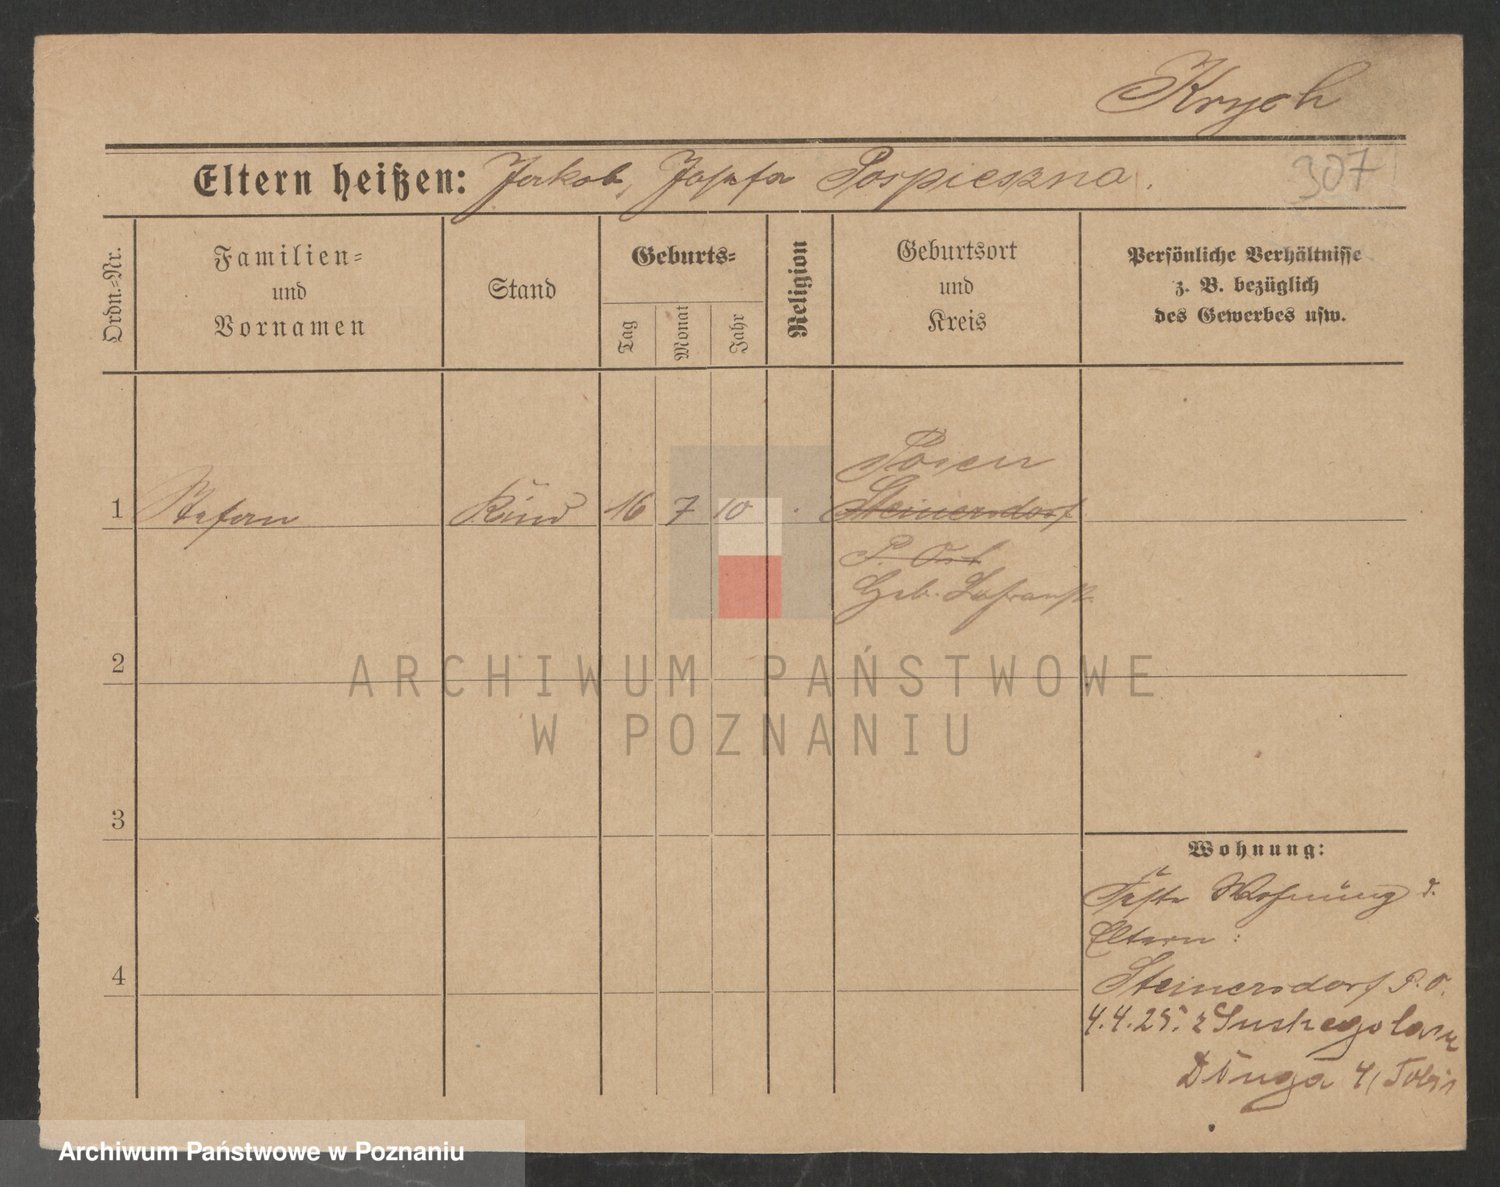 Krych
Eltern heißen: Jakob, Josefa Pospieszna.
307
Ordn.-Nr.
Familien-
und
Vornamen
Stand
Geburts-
Tag
Monat
Jahr
Religion
Geburtsort
und
Kreis
Persönliche Verhältnisse
z. B. bezüglich
des Gewerbes usw.
Posen
1 Stefan Kind 16 7 10 Steinersdorf
P. Ost
Geb.
2
3
4
Wohnung:
Feste Wohnung d.
Eltern:
Steinersdorf P. O.
4.4.25. z Suchegolasu
Długa 4/
ARCHIWUM PAŃSTWOWE
W POZNANIU
Archiwum Państwowe w Poznaniu